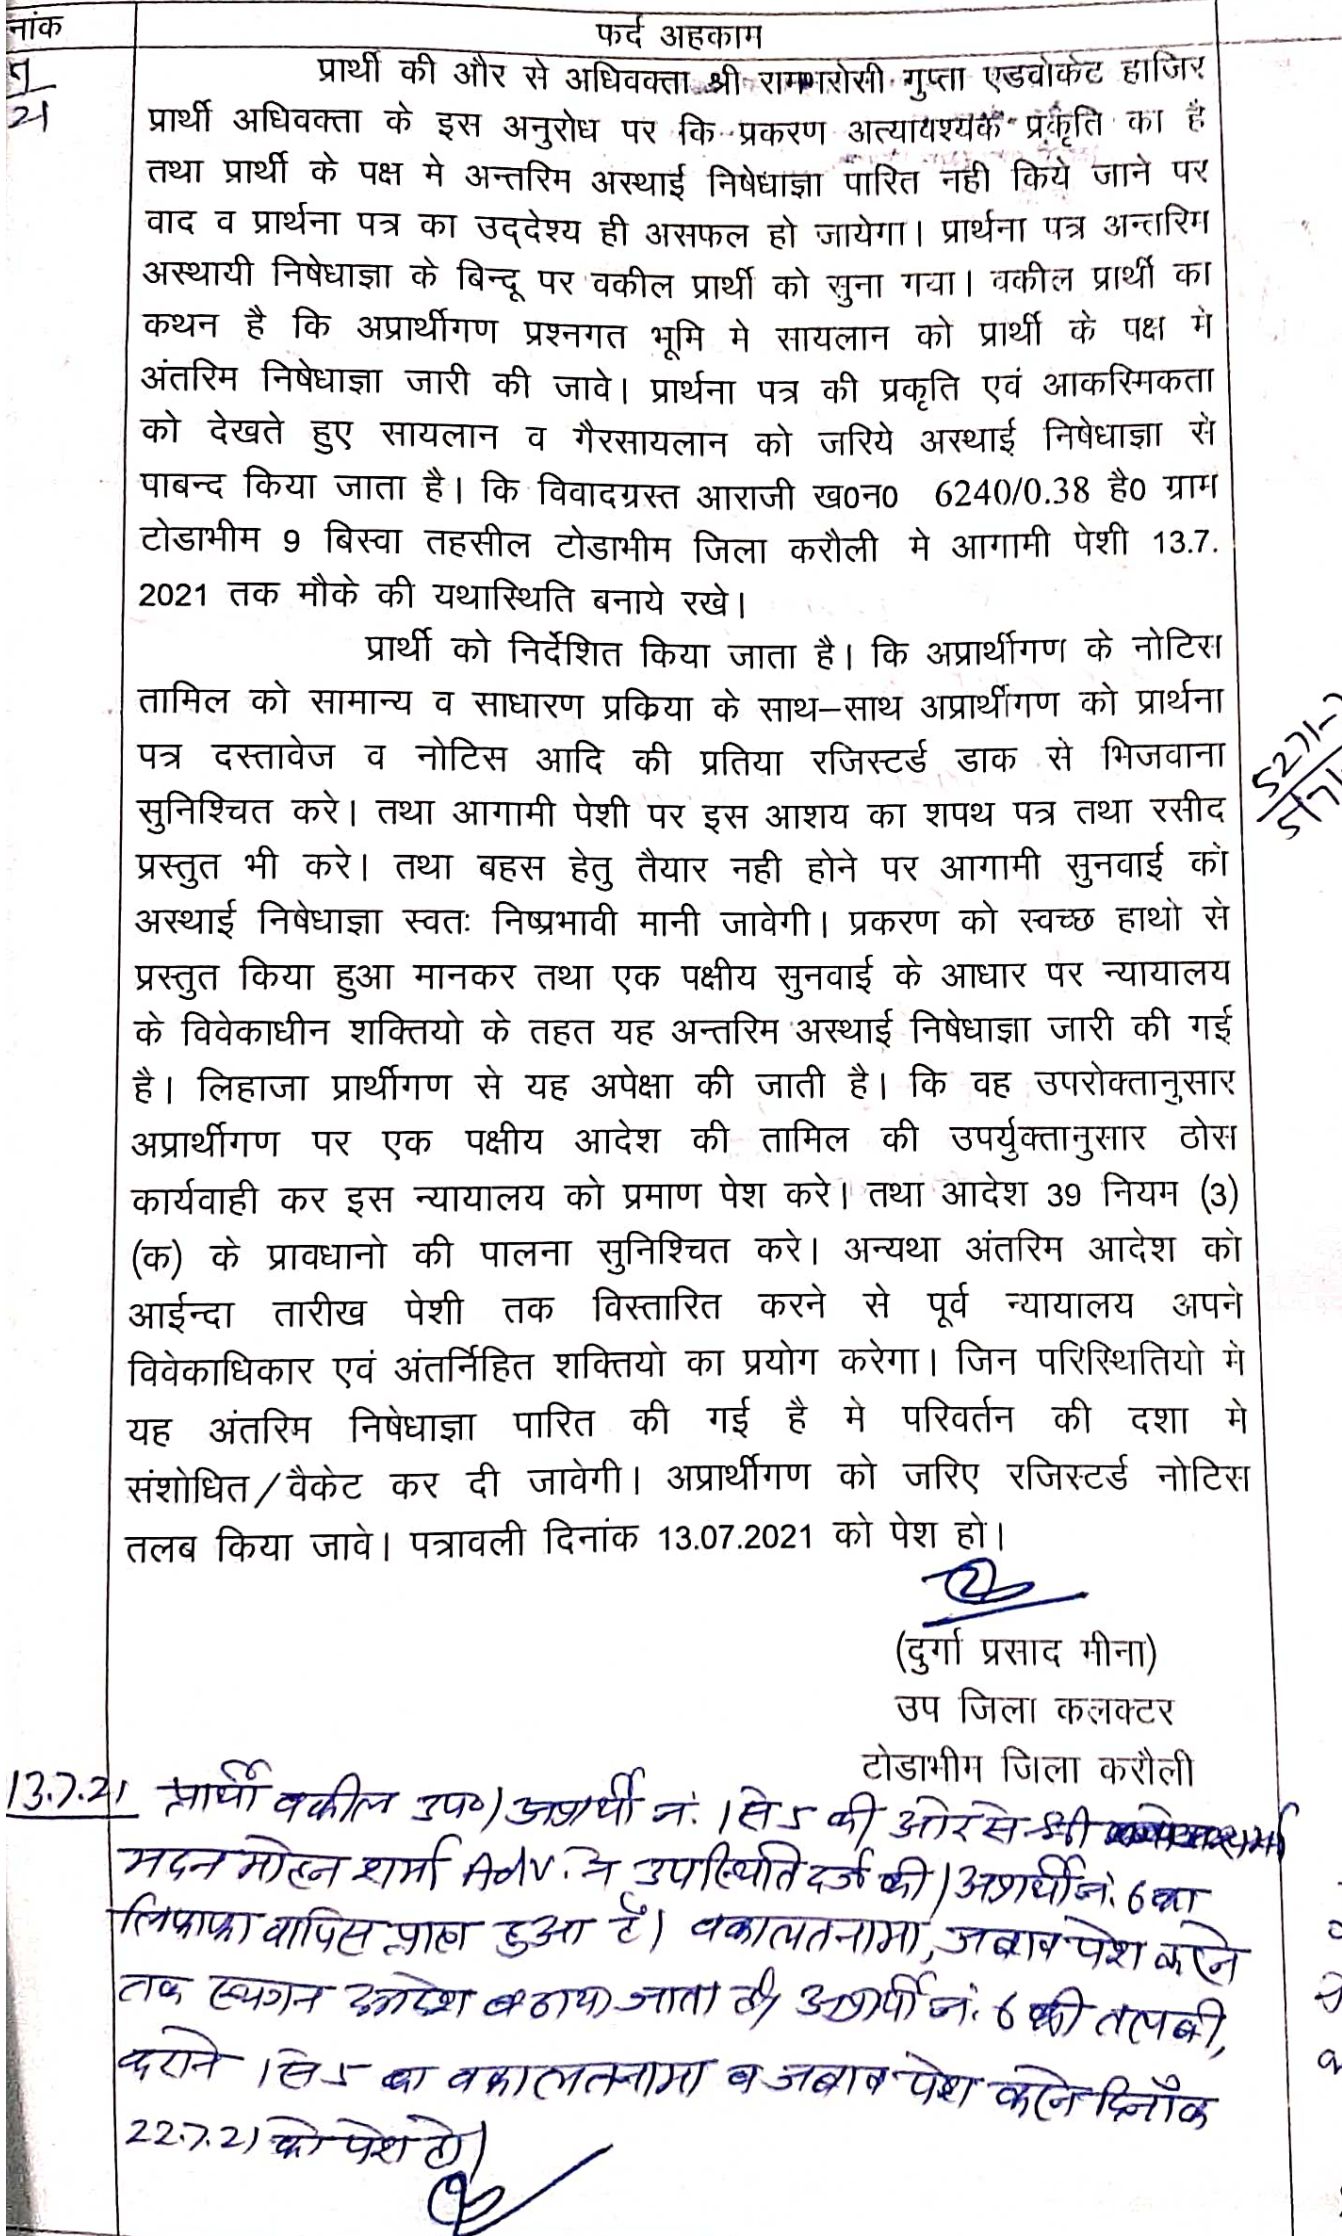 नांक
फर्द अहकाम
21
प्रार्थी की और से अधिवक्ता श्री रामभरोसी गुप्ता एडवोकेट हाजिर
प्रार्थी अधिवक्ता के इस अनुरोध पर कि प्रकरण अत्यायश्यक प्रकृति का है
तथा प्रार्थी के पक्ष मे अन्तरिम अस्थाई निषेधाज्ञा पारित नही किये जाने पर
वाद व प्रार्थना पत्र का उद्देश्य ही असफल हो जायेगा। प्रार्थना पत्र अन्तरिम
अस्थायी निषेधाज्ञा के बिन्दू पर वकील प्रार्थी को सुना गया। वकील प्रार्थी का
कथन है कि अप्रार्थीगण प्रश्नगत भूमि मे सायलान को प्रार्थी के पक्ष मे
अंतरिम निषेधाज्ञा जारी की जावे। प्रार्थना पत्र की प्रकृति एवं आकस्मिकता
को देखते हुए सायलान व गैरसायलान को जरिये अस्थाई निषेधाज्ञा से
पाबन्द किया जाता है। कि विवादग्रस्त आराजी ख0न0 6240/0.38 है0 ग्राम
टोडाभीम 9 बिस्वा तहसील टोडाभीम जिला करौली मे आगामी पेशी 13.7.
2021 तक मौके की यथास्थिति बनाये रखे।
प्रार्थी को निर्देशित किया जाता है। कि अप्रार्थीगण के नोटिस
तामिल को सामान्य व साधारण प्रकिया के साथ–साथ अप्रार्थीगण को प्रार्थना
पत्र दस्तावेज व नोटिस आदि की प्रतिया रजिस्टर्ड डाक से भिजवाना
सुनिश्चित करे। तथा आगामी पेशी पर इस आशय का शपथ पत्र तथा रसीद
प्रस्तुत भी करे। तथा बहस हेतु तैयार नही होने पर आगामी सुनवाई को
अस्थाई निषेधाज्ञा स्वतः निष्प्रभावी मानी जावेगी। प्रकरण को स्वच्छ हाथो से
प्रस्तुत किया हुआ मानकर तथा एक पक्षीय सुनवाई के आधार पर न्यायालय
के विवेकाधीन शक्तियो के तहत यह अन्तरिम अस्थाई निषेधाज्ञा जारी की गई
है। लिहाजा प्रार्थीगण से यह अपेक्षा की जाती है। कि वह उपरोक्तानुसार
अप्रार्थीगण पर एक पक्षीय आदेश की तामिल की उपर्युक्तानुसार ठोस
कार्यवाही कर इस न्यायालय को प्रमाण पेश करे। तथा आदेश 39 नियम (3)
(क) के प्रावधानो की पालना सुनिश्चित करे। अन्यथा अंतरिम आदेश को
आईन्दा तारीख पेशी तक विस्तारित करने से पूर्व न्यायालय अपने
विवेकाधिकार एवं अंतर्निहित शक्तियो का प्रयोग करेगा। जिन परिस्थितियो मे
यह अंतरिम निषेधाज्ञा पारित की गई है मे परिवर्तन की दशा मे
संशोधित/वैकेट कर दी जावेगी। अप्रार्थीगण को जरिए रजिस्टर्ड नोटिस
तलब किया जावे। पत्रावली दिनांक 13.07.2021 को पेश हो।
(दुर्गा प्रसाद मीना)
उप जिला कलक्टर
टोडाभीम जिला करौली
13.7.21 प्रार्थी वकील उप0। अप्रार्थी नं. 1 से 5 की ओर से श्री
मदन मोहन शर्मा Adv. ने उपस्थिति दर्ज की। अप्रार्थी नं. 6 का
लिफाफा वापिस प्राप्त हुआ है। वकालतनामा, जबाब पेश करने
तक स्थगन आदेश बढाया जाता है। अप्रार्थी नं. 6 की तलबी,
कराने 1 से 5 का वकालतनामा व जबाब पेश करने दिनाँक
22.7.21 को पेश हो।